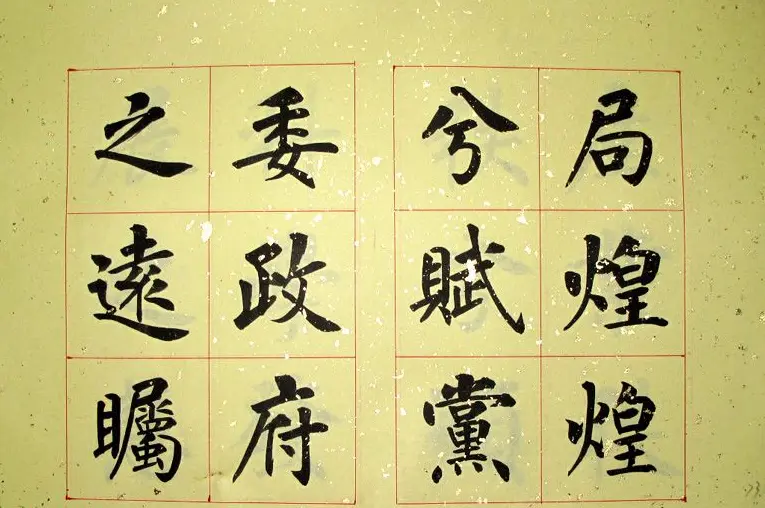 局煌煌
兮賦黨
委政府
之遠矚